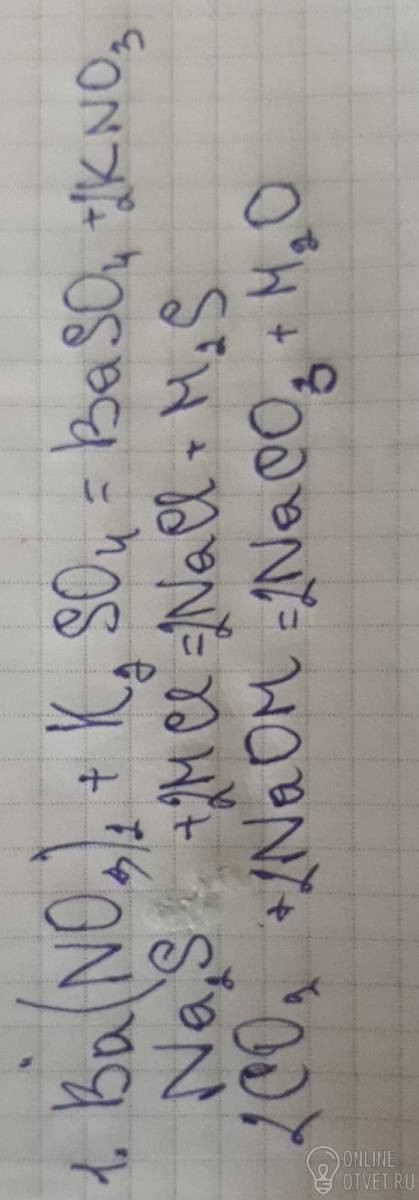 1. Ba(NO3)2 + K2SO4 = BaSO4 + 2KNO3
Na2S + 2HCl = 2NaCl + H2S
2CO2 + 2NaOH = 2NaCO3 + H2O
ONLINE
OTVET.RU